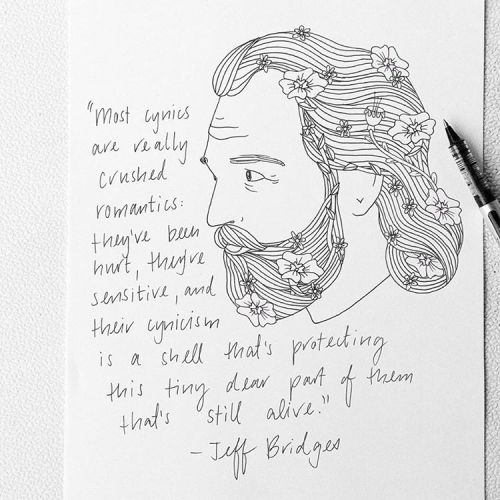 "Most cynics
are really
crushed
romantics:
they've been
hurt, they're
sensitive, and
their cynicism
is a shell that's protecting
this tiny dear part of them
that's still alive."
- Jeff Bridges